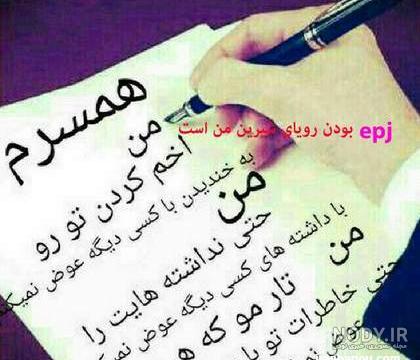 همسرم
epj بودن رویای شیرین من است
من
اخم کردن تو رو
به خندیدن با کسی دیگه عوض نمیکن
من
حتی نداشته هایت را
با داشته های کسی دیگه عوض نمیک
من
تار مو که ه
حتی خاطرات تو با
NODY.IR